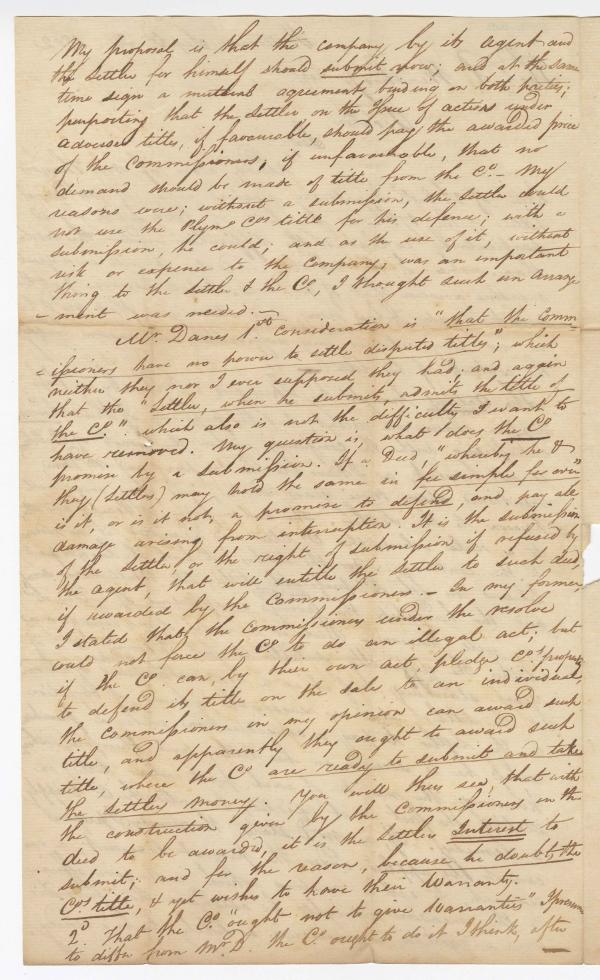 My proposal is that the company by its agent and
the settler for himself should submit now; and at the same
time sign a mutual agreement, binding on both parties;
purporting that the settler, on the issue of actions under
adverse titles, if favourable, should pay the awarded price
of the Commissioners; if unfavourable, that no
demand should be made of title from the Co. – My
reasons were; without a submission, the settler could
not use the Plymo Cos title for his defence; with a
submission, he could; and as the use of it, without
risk or expence to the Company, was an important
thing to the settler & the Co, I thought such an arrange
– ment was needed. –
Mr. Danes 1st. Consideration is "that the Comm-
– issioners have no power to settle disputed titles"; which
neither they nor I ever supposed they had. and again
that the "Settler, when he submits, admits the title of
the Co." which also is not the difficulty I want to
have removed. My question is, what does the Co
promise by a submission. If a Deed, "whereby he &
they (settlers) may hold the same in fee simple for ever"
is it, or is it not, a promise to defend, and pay all
damage arising from interruption. It is the submission
of the settler or the right of submission if refused by
the agent, that will entitle the settler to such deed,
if awarded by the Commissioners. – In my former,
I stated that the Commissioners under the resolve
could not force the Co to do an illegal act; but
if the Co. can, by their own act, pledge Cos property
to defend its title on the sale to an individual,
the Commissioners in my opinion can award such
title, and apparently they ought to award such
title, where the Co are ready to submit and take
the settlers money. You will thus see, that with
the construction given by the Commissioners on the
deed to be awarded, it is the settlers Interest to
submit; and for the reason, because he doubts the
Cos title, & yet wishes to have their Warranty.
2d That the Co. "ought not to give warranties" I presume
to differ from Mr D. the Co. ought to do it I think, after